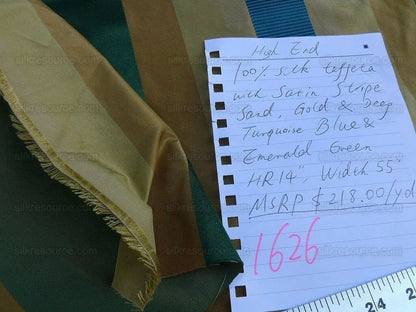 High End
100% silk taffeta
with Satin Stripe
Sand, Gold & Deep
Turquoise Blue &
Emerald Green
HR 14", Width 55"
MSRP $218.00/yd
1626
silkresource.com
22
23
24